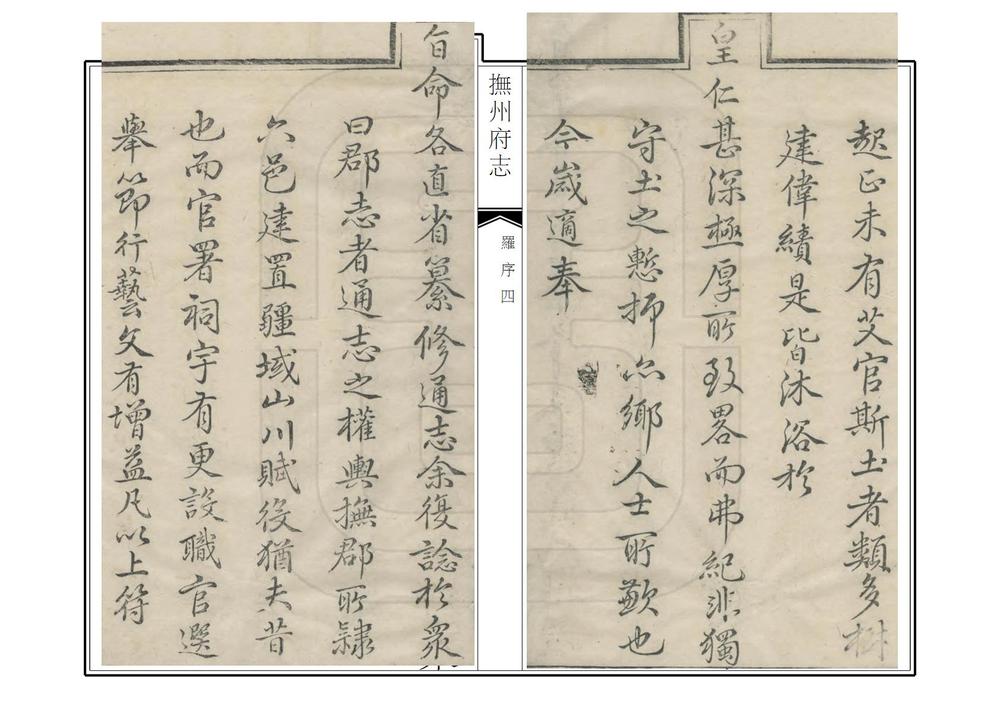 起正未有艾官斯土者類多樹
建偉績是皆沐浴於
皇仁甚深極厚所致畧而弗紀非獨
守土之慙抑亦鄉人士所歉也
今歲適奉
撫州府志
羅序四
旨命各直省纂修通志余復諗於眾
曰郡志者通志之權輿撫郡所隸
六邑建置疆域山川賦役猶夫昔
也而官署祠宇有更設職官選
舉節行藝文有增益凡以上符